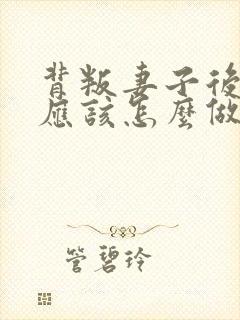 背叛妻子後
應該怎麼做
管碧玲